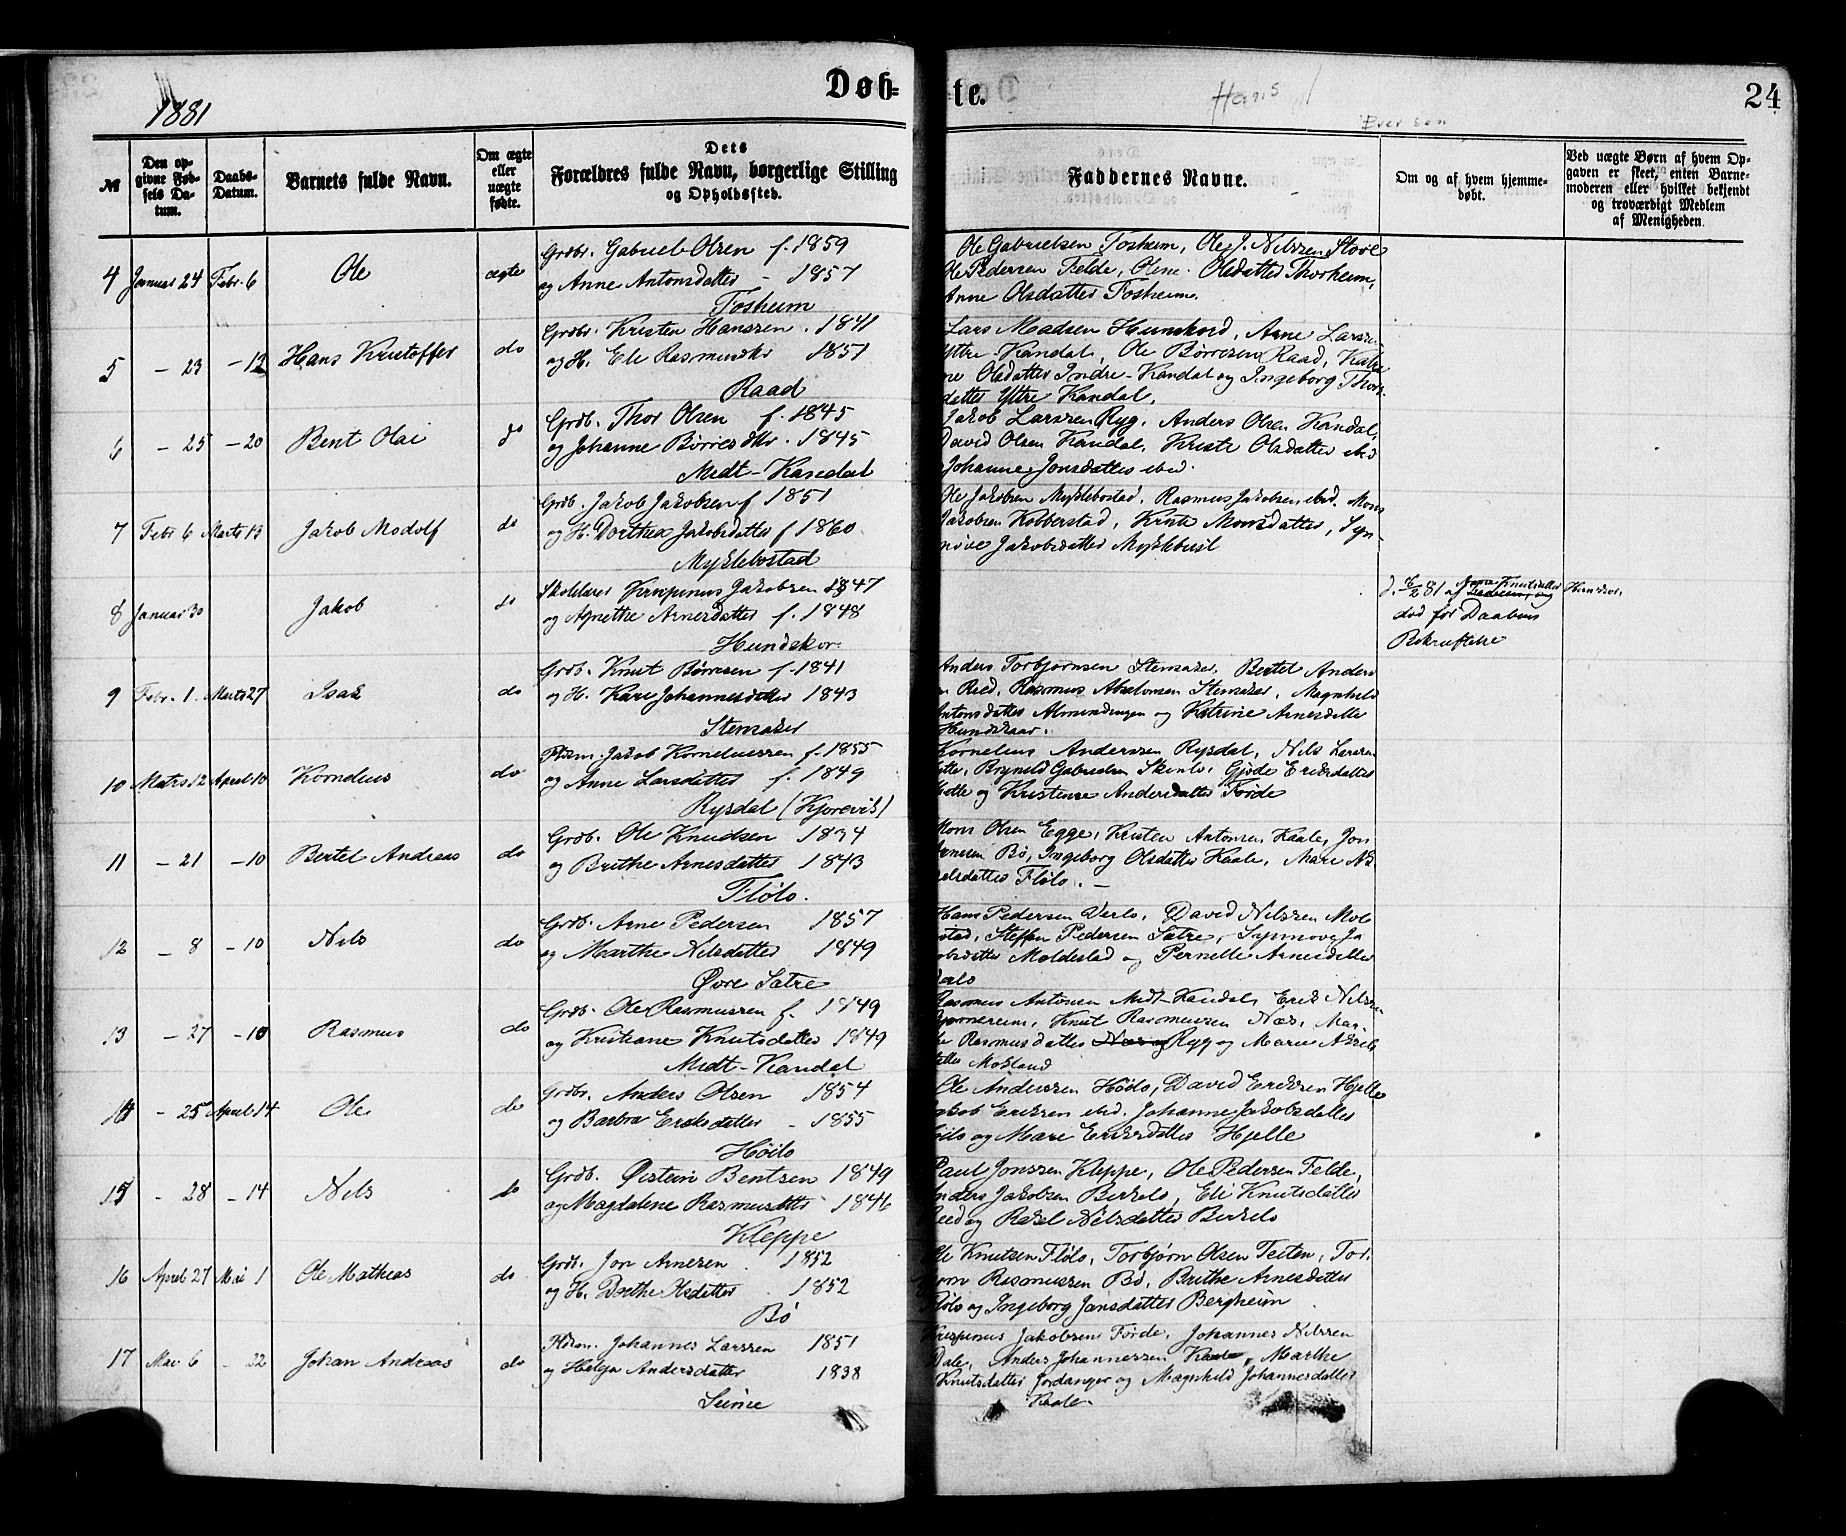 1881
Døb-
te.
Hans
24
№
Den opgivne Fødsels Datum.
Daabs-Datum.
Barnets fulde Navn.
Om ægte eller uægte fødte.
Dets Forældres fulde Navn, borgerlige Stilling og Opholdssted.
Faddernes Navne.
Om og af hvem hjemmedøbt.
Ved uægte Børn af hvem Opgaven er skeet, enten Barnemoderen eller hvilket bekjendt og troværdigt Medlem af Menigheden.
4 Januar 24 Febr. 6 Ole ægte
Grdbr. Gabriel Olsen f. 1859
og Anne Antonsdatter - 1857
Fosheim
Ole Gabrielsen Fosheim, Ole J. Nilssen Støve
Ole Pedersen Felde, Oline Olsdatter Thorheim,
Anne Olsdatter Fosheim.
5 - 23 - 13 Hans Kristoffer do
Grdbr. Kristen Hanssen . 1841
og H. Eli Rasmusdtr 1851
Raad
Lars Madsen Hunskord, Arne Larsen
Yttre-Kandal, Ole Børresen Raad, Katri
ne Olsdatter Indre-Kandal og Ingeborg Thors
datter Yttre Kandal.
6 - 25 - 20 Bent Olai do
Grdb. Thor Olsen f. 1845
og Johanne Børresdtr. 1845
Midt-Kandal
Jakob Larssen Ryg, Anders Olsen Kandal,
David Olsen Kandal, Kristi Olsdatter ibid
Johanne Jonsdatter ibid.
7 Febr 6 Marts 13 Jakob Modolf do
Grdb. Jakob Jakobsen f 1851
og H. Dorthea Jakobsdatter f 1860
Myklebostad
Ole Jakobsen Myklebostad, Rasmus Jakobsen ibid. Mons
Jakobsen Kobberstad, Kristi Monsdatter, Syn-
nøve Jakobsdatter Myklebust
8 Januar 30 Jakob do
Skolelærer Krispinus Jakobsen 1847
og Agnethe Arnesdatter f. 1848
Hundskor
d. 6/2 81 af Anne Knutsdatter Hunskor,
død før Daabens
Bekræftelse
9 Febr. 1. Marts 27 Isak do
Grdb. Knut Børresen f. 1841
og H. Kari Johannesdatter 1843
Stensaker
Anders Torbjørnsen Stensaker, Bertel Anders
en Reed, Rasmus Absalonsen Stensaker, Magnhild
Antonsdatter Almendingen og Katrine Arnesdatter
Hundskaar.
10 Marts 12 April 10 Kornelius do
Plsm. Jakob Korneliussen f. 1855
og Anne Larsdatter f. 1849
Rysdal (Kjorevik)
Kornelius Anderssen Rysdal, Nils Larsen
Brynild Gabrielsen Skinlo, Gjøde Eriksdatter
og Kristense Andersdatter Førde
11 - 21 - 10 Bertel Andreas do
Grdb. Ole Knudsen 1834
og Brithe Arnesdatter 1843
Flølo.
Mons Olsen Egge, Kristen Antonsen Kaale, Jon
Arnesen Bø, Ingeborg Olsdatter Kaale, Mari Ni
elsdatter Fløló. -
12 - 8 - 10 Nils do
Grdb. Arne Pedersen 1857
og Marthe Nilsdatter 1849
Øvre Sætre
Hans Pedersen Verlo, David Nilssen Mole
stad, Steffen Pedersen Sætre, Synnove Ja
kobsdatter Moldestad og Pernelle Arnesdatter
Verlo
13 - 27 - 10 Rasmus do
Grdb. Ole Rasmussen f. 1849
og Kristiane Knutsdatter 1849
Midt-Kandal
Rasmus Antonsen Midt-Kandal, Erik Nilsen
Bjørnereim, Knut Rasmussen Nos, Mar-
the Rasmusdatter Nos og Ryg og Marie Akselsdatter
Mokland
14 - 25 April 14 Ole do
Grdbr. Anders Olsen 1854
og Barbra Eriksdatter - 1855
Høilo
Ole Anderssen Høilo, David Erikssen Hjelle
Jakob Eriksen ibid. Johanne Jakobsdatter
Høilo og Mari Eriksdatter Hjelle
15 - 28 - 14 Nils do
Grdb. Øistein Bentsen 1849
og Magdalene Rasmusdatter 1846
Kleppe
Paul Jonssen Kleppe, Ole Pedersen Felde,
Anders Jakobsen Birkelo, Eli Knutsdatter
Reed og Rakel Nilsdatter Birkelo
16 April 27 Mai 1 Ole Mathias do
Grdb. Jon Arnesen . 1852
og H. Dorthe Olsdatter . 1852
Bø
Ole Knutsen Fløló, Torbjørn Olsen Teiten, Tor-
bjørn Rasmussen Bø, Brithe Arnesdatter
Fløló og Ingeborg Jansdatter Bergheim
17 Mai 6 - 22 Johan Andreas do
Hsm. Johannes Larssen 1851
og Helga Andersdatter 1838
Seime
Krispinus Jakobsen Førde, Johannes Nilssen
Dale, Anders Johannessen Kaale, Marthe
Knutsdatter Jordanger og Magnhild Johannesdatter
Kaale